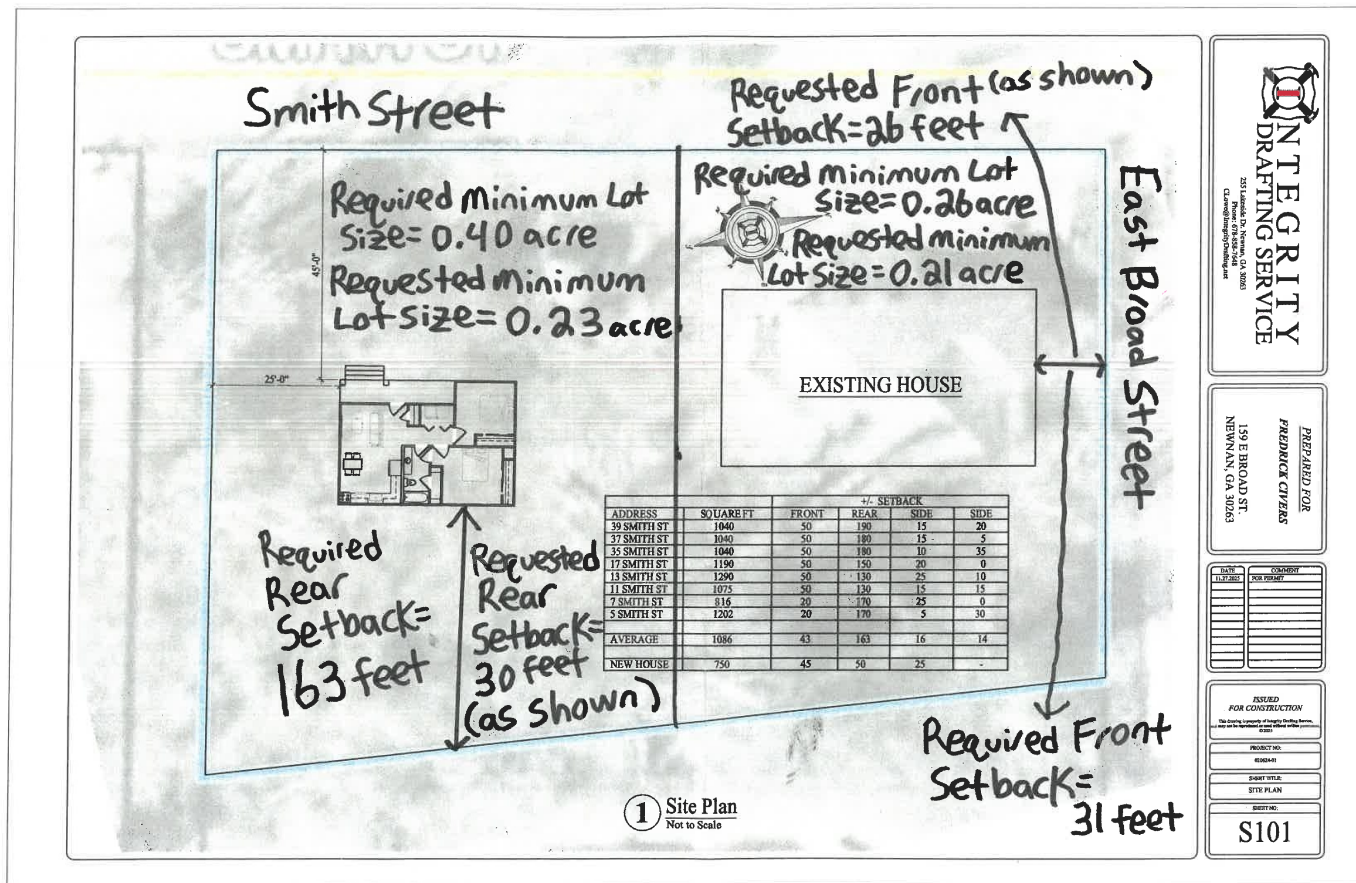 Smith Street
Requested Front (as shown)
Setback=26 feet
Required Minimum Lot
Size= 0.40 acre
Requested Minimum
Lot Size= 0.23 acre
Required minimum Lot
Size=0.26 acre
Requested minimum
Lot Size=0.21 acre
45'-0"
25'-0"
EXISTING HOUSE
East Broad Street
Required
Rear
Setback=
163 feet
Requested
Rear
Setback=
30 feet
(as shown)
+/- SETBACK
ADDRESS SQUARE FT FRONT REAR SIDE SIDE
39 SMITH ST 1040 50 190 15 20
37 SMITH ST 1040 50 180 15 5
35 SMITH ST 1040 50 180 10 35
17 SMITH ST 1190 50 150 20 0
13 SMITH ST 1290 50 130 25 10
11 SMITH ST 1075 50 130 15 15
7 SMITH ST 816 20 170 25 0
5 SMITH ST 1202 20 170 5 30
AVERAGE 1086 43 163 16 14
NEW HOUSE 750 45 50 25 -
Required Front
Setback=
31 feet
1 Site Plan
Not to Scale
INTEGRITY
DRAFTING SERVICE
255 Lakeside Dr. Newnan, GA 30263
Phone: 678-858-7648
CLowe@IntegrityDrafting.net
PREPARED FOR
FREDRICK CIVERS
159 E BROAD ST.
NEWNAN, GA 30263
DATE COMMENT
11.27.2025 FOR PERMIT
ISSUED
FOR CONSTRUCTION
This drawing is property of Integrity Drafting Service,
may not be reproduced or used without written permission.
PROJECT NO:
SHEET TITLE:
SITE PLAN
SHEET NO:
S101